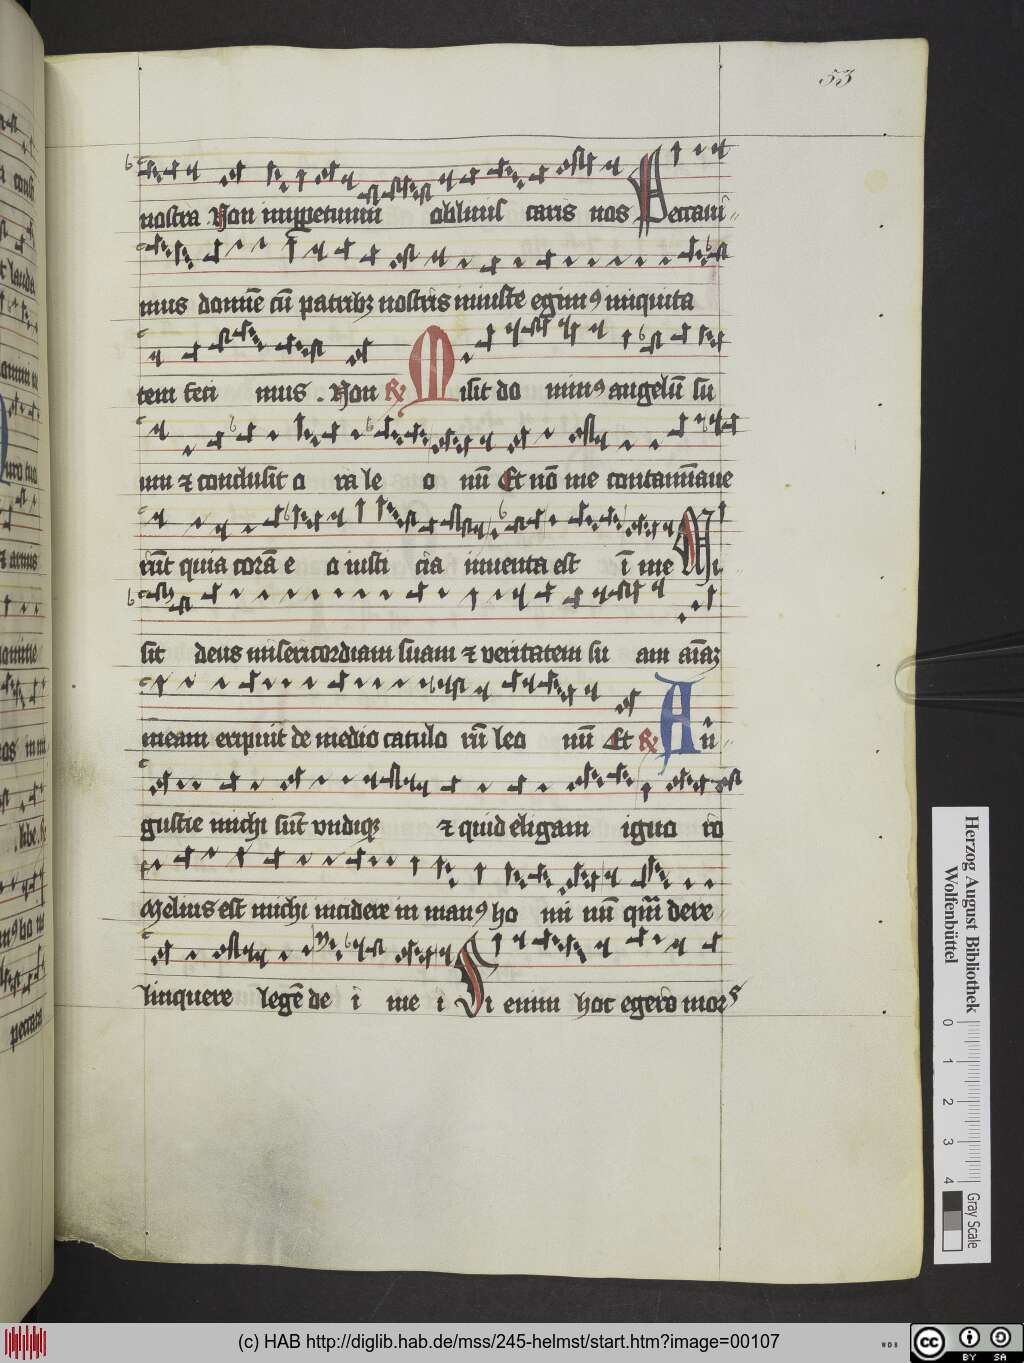 53
nostra Non inippetuum obliuis caris nos Peccaui
mus domīe cū patribꝫ nostris iniuste egimꝯ iniquita
tem feci mus . Non ℟ Misit do minꝯ angelū su
um ⁊ conclusit o ra le o nū Et nō me contamīaue
rūt quia corā e o iusti cia inuenta est ī me Mi
sit deus misericordiam suam ⁊ veritatem su am aīaꝫ
meam eripuit de medio catulo rū leo nū Et ℟ An
gustie michi sūt vndiqꝫ ⁊ quid eligam igno ro
Melius est michi incidere in manꝯ ho mi nū quā dere
linquere legē de i me i Si enim hoc egero mors
Herzog August Bibliothek
Wolfenbüttel
0 1 2 3 4
Gray Scale
(c) HAB http://diglib.hab.de/mss/245-helmst/start.htm?image=00107
WDB
cc BY SA